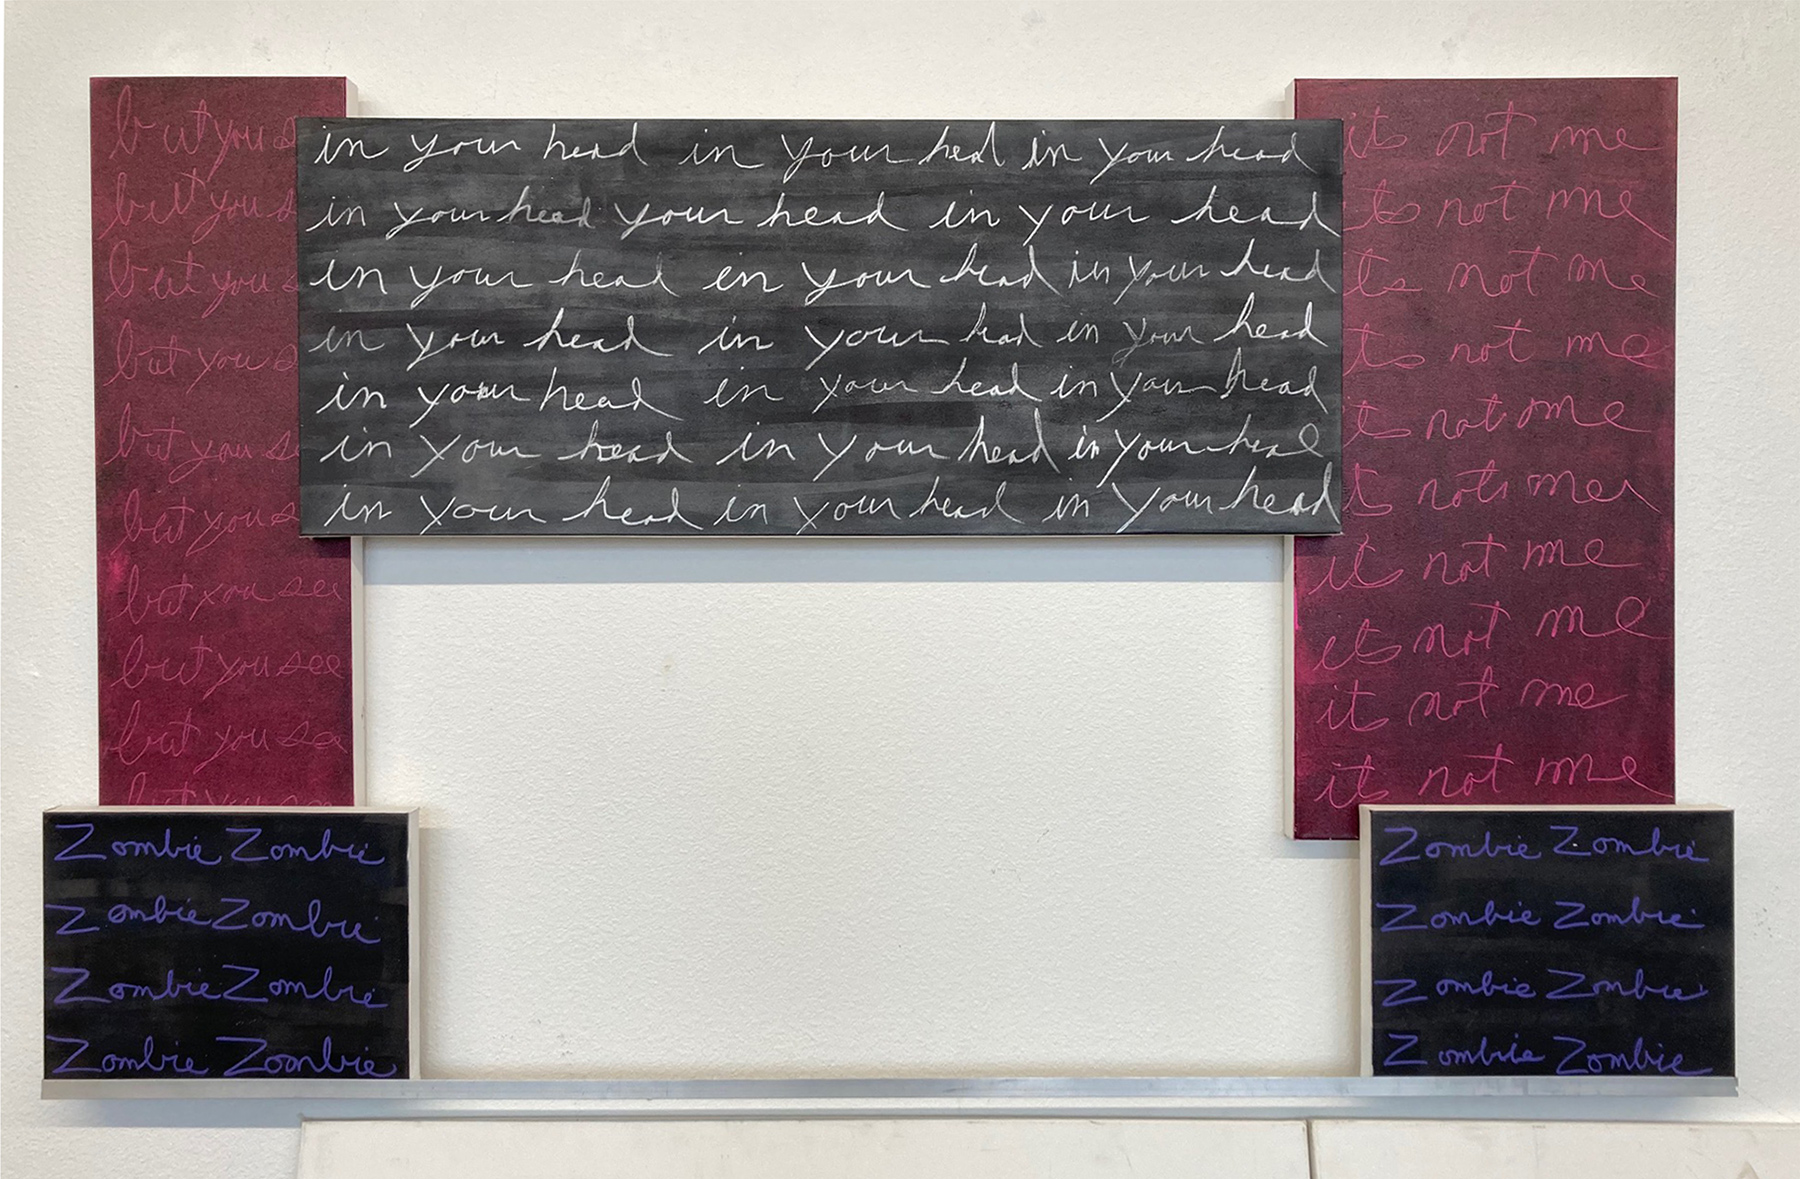 but you s
but you s
but you s
but you s
but you s
but you s
but you see
but you see
but you see
but you see
in your head in your hed in your head
in your head your head in your head
in your head in your head in your head
in your head in your head in your head
in your head in your head in your head
in your head in your head in your head
in your head in your head in your head
its not me
ts not me
ts not me
ts not me
ts not me
ts not me
its not me
its not me
its not me
its not me
Zombie Zombie
Zombie Zombie
Zombie Zombie
Zombie Zombie
Zombie Zombie
Zombie Zombie
Zombie Zombie
Zombie Zombie